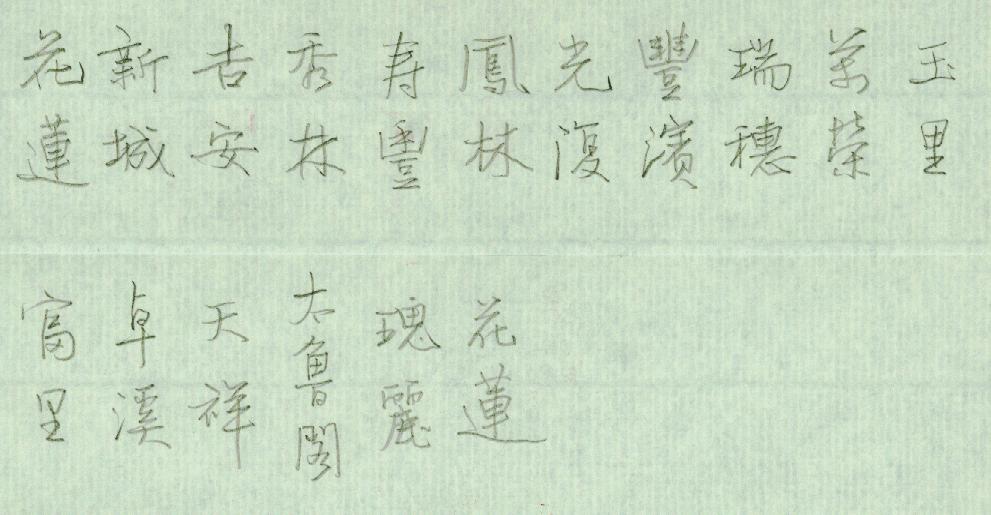 花蓮
新城
吉安
秀林
寿豐
鳳林
光復
豐濱
瑞穗
萬榮
玉里
富里
卓溪
天祥
太魯閣
瑰麗
花蓮